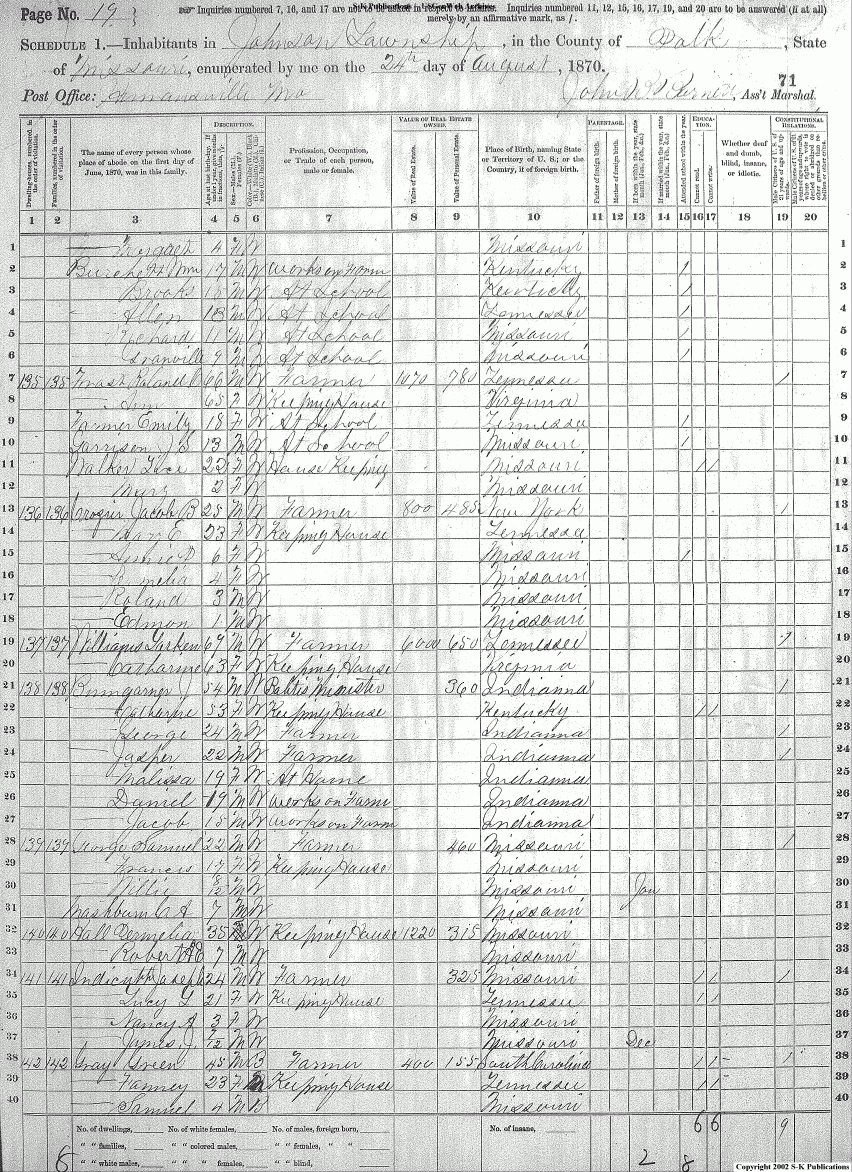 Page No. 19
Inquiries numbered 7, 16, and 17 are not to be asked in respect to infants. Inquiries numbered 11, 12, 15, 16, 17, 19, and 20 are to be answered (if at all)
merely by an affirmative mark, as /.
SCHEDULE 1.—Inhabitants in Johnson Township, in the County of Polk, State
of Missouri, enumerated by me on the 24th day of August, 1870.
71
Post Office: Mo John Ass't Marshal.
DESCRIPTION. VALUE OF REAL ESTATE OWNED. PARENTAGE. EDUCATION. CONSTITUTIONAL RELATIONS.
Dwelling-houses, numbered in the order of visitation. Families, numbered in the order of visitation. The name of every person whose place of abode on the first day of June, 1870, was in this family. Profession, Occupation, or Trade of each person, male or female. Value of Real Estate. Value of Personal Estate. Place of Birth, naming State or Territory of U. S.; or the Country, if of foreign birth. Father of foreign birth. Mother of foreign birth. Attended school within the year. Cannot read. Cannot write. Whether deaf and dumb, blind, insane, or idiotic.
1 2 3 4 5 6 7 8 9 10 11 12 13 14 15 16 17 18 19 20
1 — Margaet 4 F W Missouri 1
2 Wm 17 M W Works on Farm Kentucky / 2
3 — Brooks 15 M W At School Kentucky / 3
4 — Allen 13 M W At School Tennessee / 4
5 — Richard 11 M W At School Missouri / 5
6 — Granville 9 M W At School Missouri / 6
7 135 135 Roland 66 M W Farmer 1070 780 Tennessee / 7
8 — 65 F W Keeping House Virginia 8
9 Farmer Emily 18 F W At School Tennessee / 9
10 Garrison J S 13 M W At School Missouri / 10
11 Walker 22 F W House Keeping Missouri / / 11
12 — Mary 2 F W Missouri 12
13 136 136 Crozier Jacob B 25 M W Farmer 800 485 New York / 13
14 — Mary E 23 F W Keeping House Tennessee 14
15 — 6 F W Missouri / 15
16 — Amelia 4 F W Missouri 16
17 — Roland 3 M W Missouri 17
18 — Edmon 1 M W Missouri 18
19 137 137 Williams 67 M W Farmer 6000 650 Tennessee / 19
20 — Catharine 63 F W Keeping House Virginia 20
21 138 138 Bumgarner J 54 M W Babtis Minister 360 Indianna / 21
22 — Catharine 53 F W Keeping House Kentucky / / 22
23 — George 24 M W Farmer Indianna / 23
24 — Jasper 22 M W Farmer Indianna / 24
25 — Malissa 19 F W At Home Indianna 25
26 — Daniel 19 M W Works on Farm Indianna 26
27 — Jacob 15 M W Works on Farm Indianna 27
28 139 139 George Samuel 22 M W Farmer 460 Missouri / 28
29 — Francis 17 F W Keeping House Missouri 29
30 — Willie M W Missouri Jan 30
31 Mashburn C A 7 M W Missouri 31
32 140 140 Hall Permelia 35 W Keeping House 1220 315 Missouri 32
33 — Robert 7 M W Missouri 33
34 141 141 Joseph 24 M W Farmer 325 Missouri / / / 34
35 — Lucy G 21 F W Keeping House Tennessee / / 35
36 — Nancy A 3 F W Missouri 36
37 — James J M W Missouri Dec 37
38 142 142 Gray Green 45 M B Farmer 400 155 South Carolina / / / 38
39 — Fanney 23 F Keeping House Tennessee / / 39
40 — Samuel 4 M B Missouri 40
No. of dwellings, No. of white females, No. of males, foreign born, No. of insane, 6 6 9
" " families, " " colored males, " " females, " "
6 " " white males, " " females, " " blind, 2 8
Copyright 2002 S-K Publications